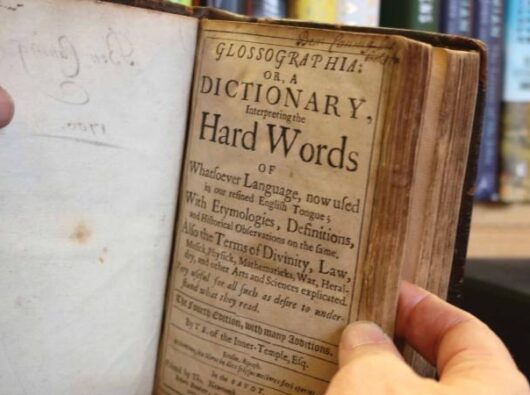 GLOSSOGRAPHIA:
OR, A
DICTIONARY,
Interpreting the
Hard Words
OF
Whatsoever Language, now used
in our refined English Tongue;
With Etymologies, Definitions,
and Historical Observations on the same.
Also the Terms of Divinity, Law,
Musick, Physick, Mathematicks, War, Heral-
dry, and other Arts and Sciences explicated.
Very useful for all such as desire to under-
stand what they read.
The Fourth Edition, with many Additions.
By T. B. of the Inner-Temple, Esq.
In the SAVOY,
Printed by Tho. Newcomb
1700.